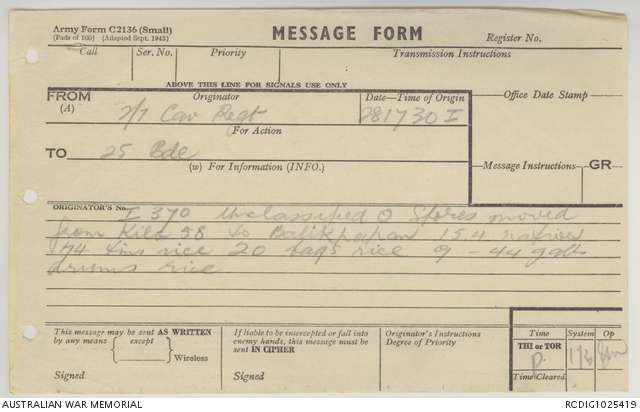 Army Form C2136 (Small)
(Pads of 100) (Adapted Sept. 1943)
MESSAGE FORM
Register No.
Call Ser. No. Priority Transmission Instructions
ABOVE THIS LINE FOR SIGNALS USE ONLY
FROM Originator Date—Time of Origin Office Date Stamp
(A) 2/7 Cav Regt 281730 I
(For Action
TO 25 Bde
(w) For Information (INFO.)
Message Instructions GR
ORIGINATOR'S No.
I 370 Unclassified O Stores moved
from Kilo 58 to Balikpapan 154 natives
74 tins rice 20 bags rice 9 - 44 galls
drums rice
This message may be sent AS WRITTEN
by any means except
Wireless
Signed
If liable to be intercepted or fall into
enemy hands, this message must be
sent IN CIPHER
Signed
Originator's Instructions
Degree of Priority
Time System Op
THI or TOR
Time Cleared
AUSTRALIAN WAR MEMORIAL RCDIG1025419